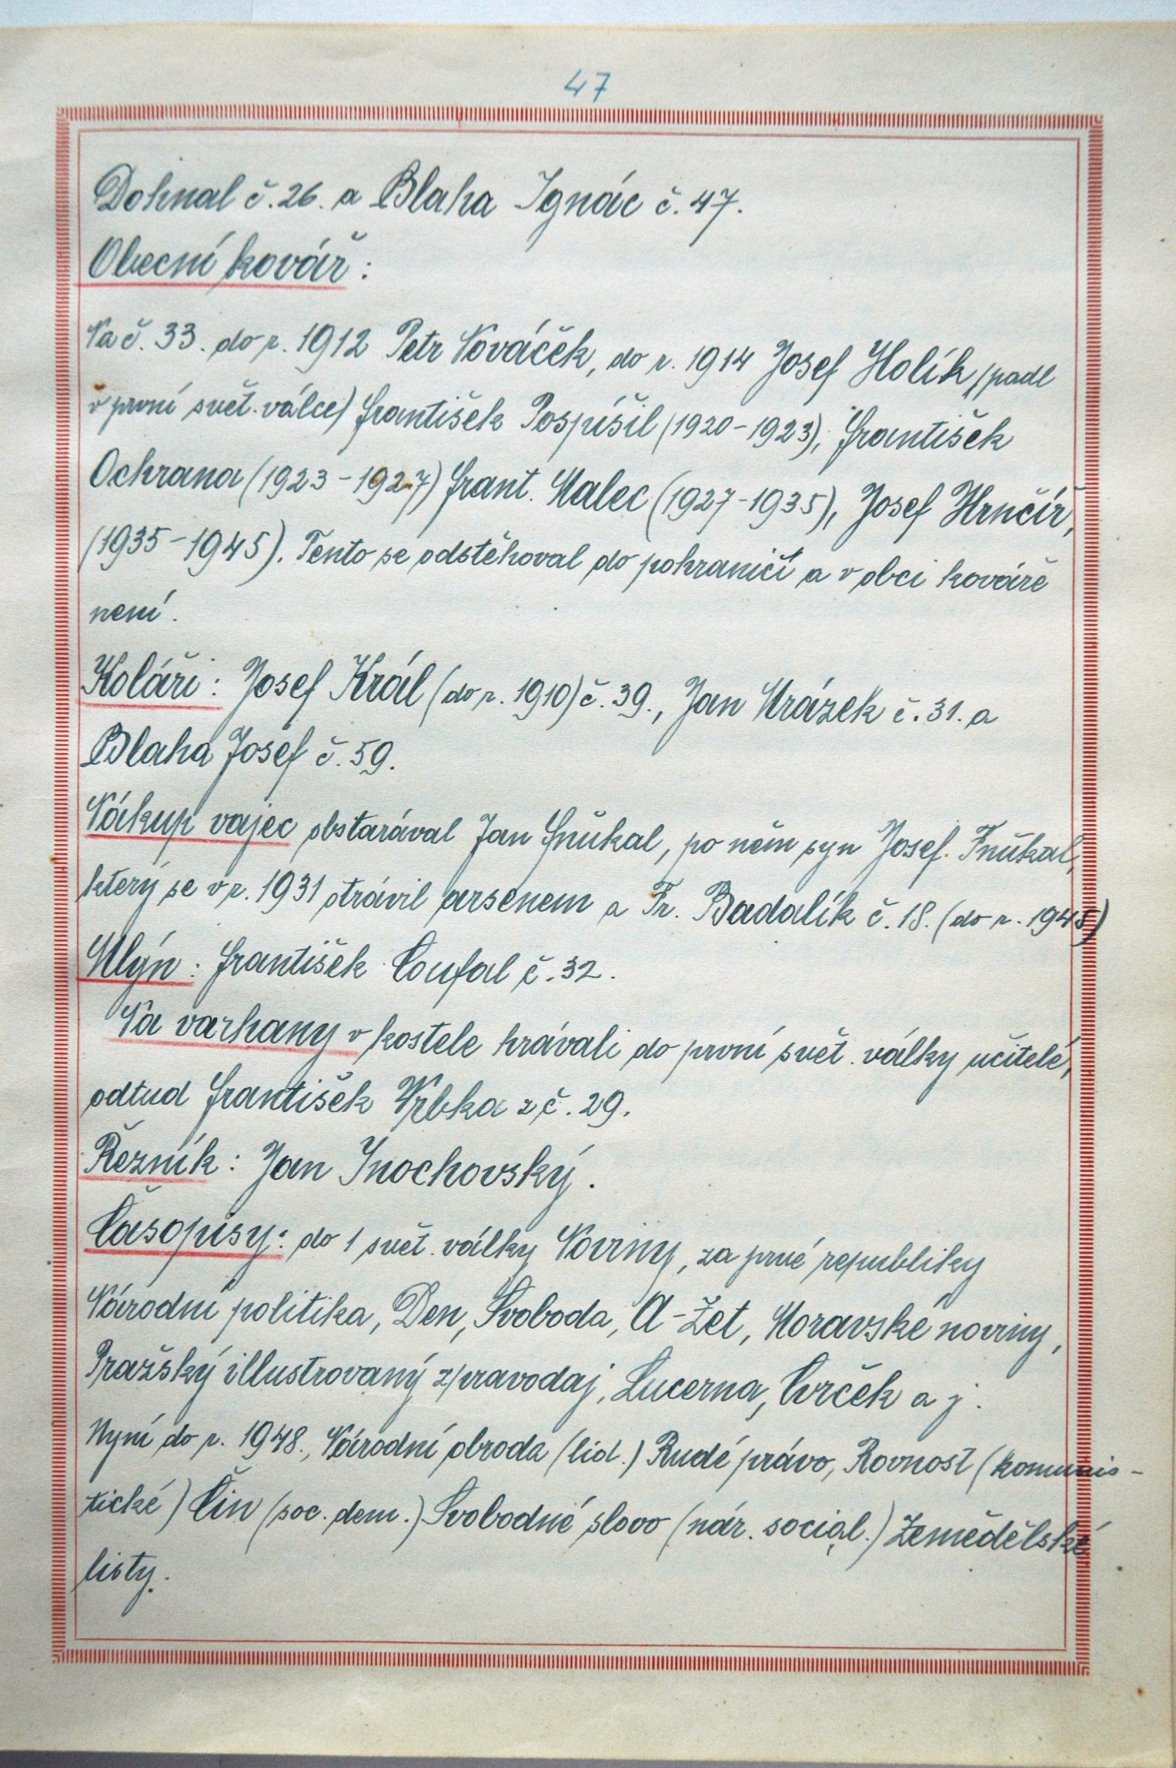 47
Dohnal č. 26. a Blaha Ignác č. 47.
Obecní kovář:
Na č. 33. do r. 1912 Petr Nováček, do r. 1914 Josef Holík (padl
v první svět. válce) František Pospíšil (1920-1923), František
Ochrana (1923-1927) Frant. Malec (1927-1935), Josef Hrnčíř,
(1935-1945). Tento se odstěhoval do pohraničí a v obci kováře
není.
Koláři: Josef Král (do r. 1910) č. 39., Jan Mrázek č. 31. a
Blaha Josef č. 59.
Nákup vajec obstarával Jan Fňukal, po něm syn Josef Fňukal,
který se v r. 1931 otrávil arsenem a Fr. Badalík č. 18. (do r. 1945)
Mlýn: František Coufal č. 32.
Na varhany v kostele hrávali do první svět. války učitelé,
odtud František Vrbka z č. 29.
Řezník: Jan Inochovský.
Časopisy: do 1 svět. války Noviny, za prvé republiky
Národní politika, Den, Svoboda, A-Zet, Moravské noviny,
Pražský illustrovaný zpravodaj, Lucerna, Cvrček a j.
Nyní do r. 1948., Národní obroda (lid.) Rudé právo, Rovnost (komunis-
tické) Čin (soc. dem.) Svobodné slovo (nár. social.) Zemědělské
listy.